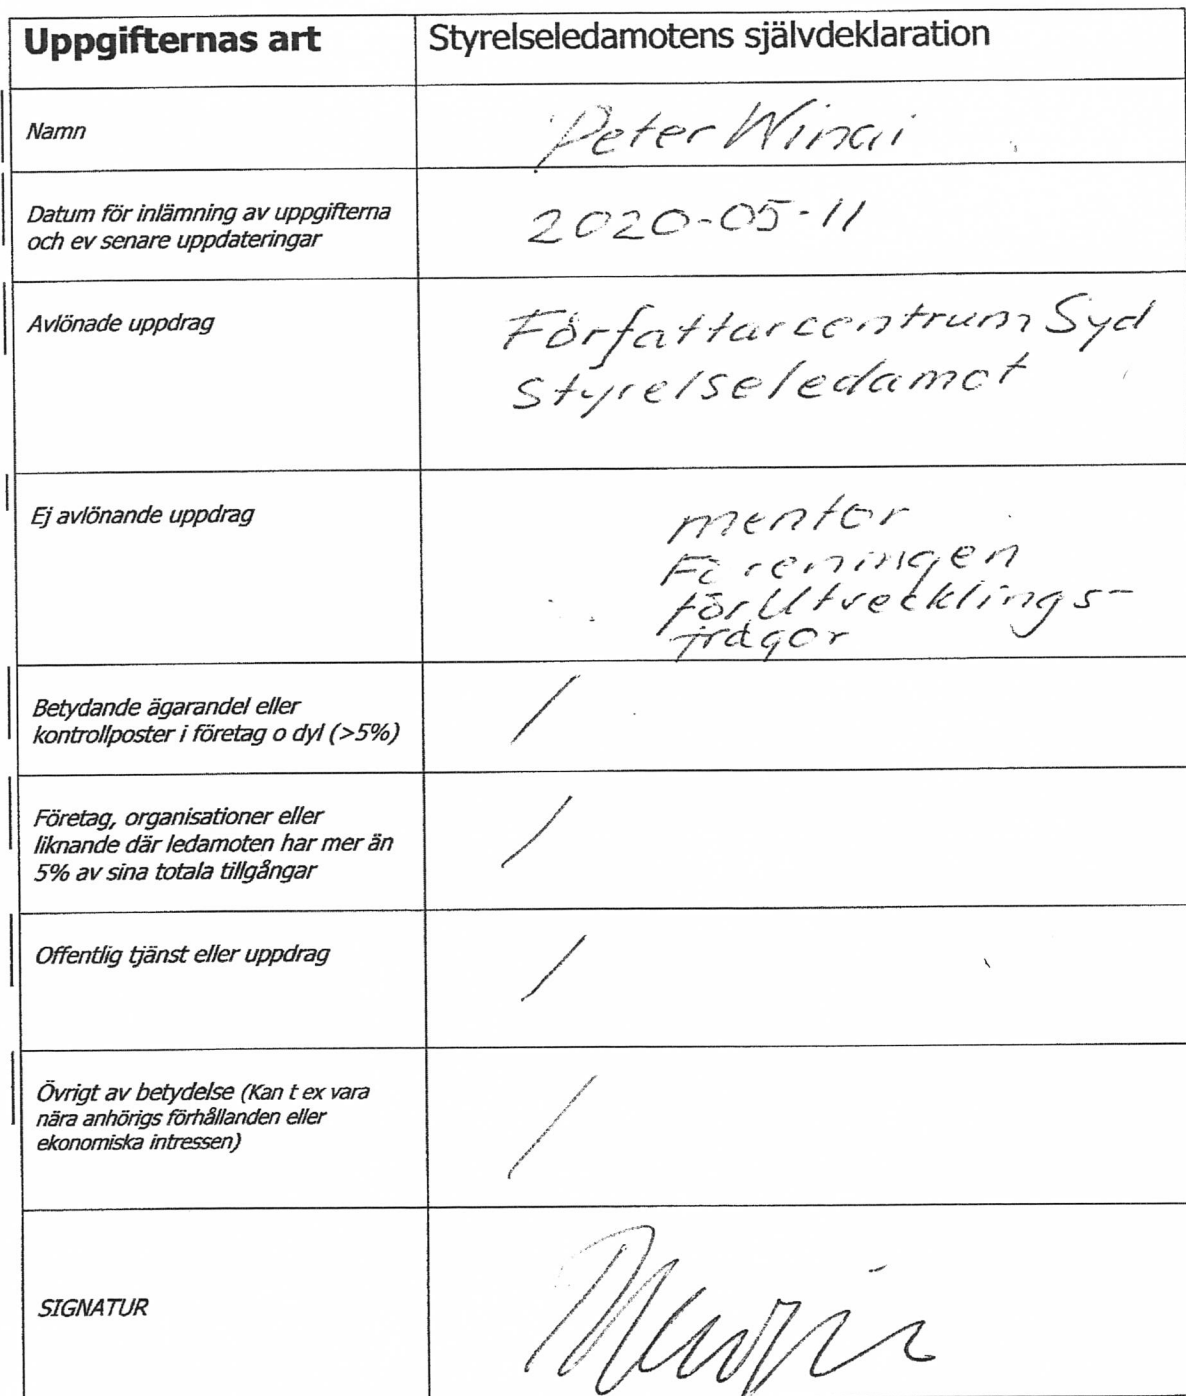 Uppgifternas art
Styrelseledamotens självdeklaration
Namn
Peter Winai
Datum för inlämning av uppgifterna
och ev senare uppdateringar
2020-05-11
Avlönade uppdrag
Författarcentrum Syd
Styrelseledamot
Ej avlönande uppdrag
mentor
Föreningen
för Utvecklings-
frågor
Betydande ägarandel eller
kontrollposter i företag o dyl (>5%)
/
Företag, organisationer eller
liknande där ledamoten har mer än
5% av sina totala tillgångar
/
Offentlig tjänst eller uppdrag
/
Övrigt av betydelse (Kan t ex vara
nära anhörigs förhållanden eller
ekonomiska intressen)
/
SIGNATUR